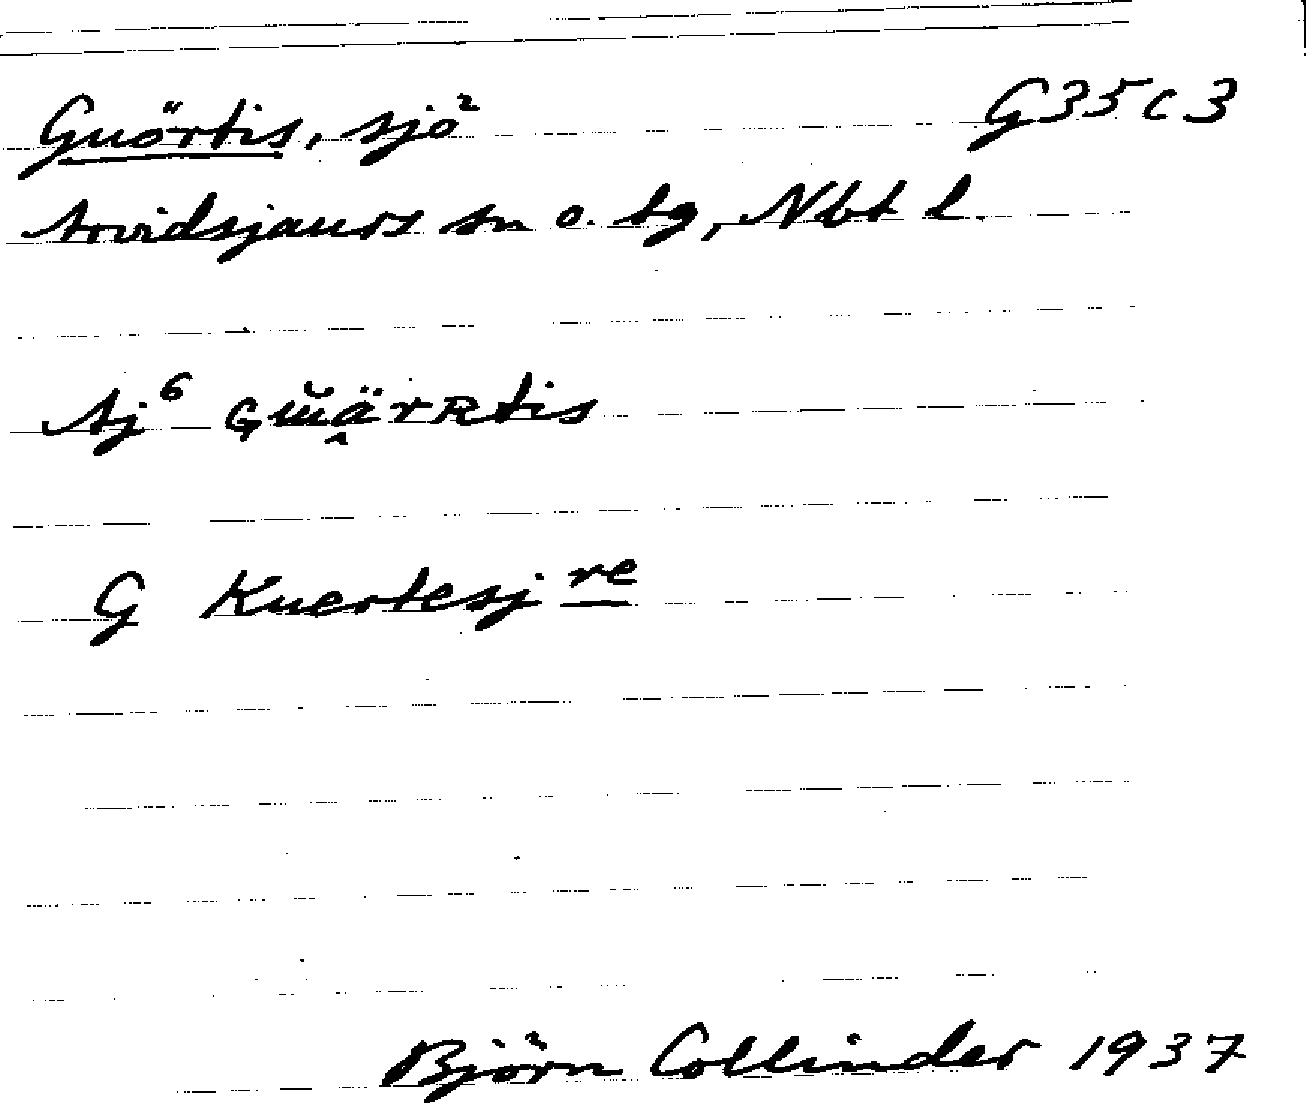 Guörtis, sjö G35c3
Arvidsjaurs sn o. tg, Nbt l.
Aj⁶ Gŭä̭rRtis
G Kuertesj re
Björn Collinder 1937